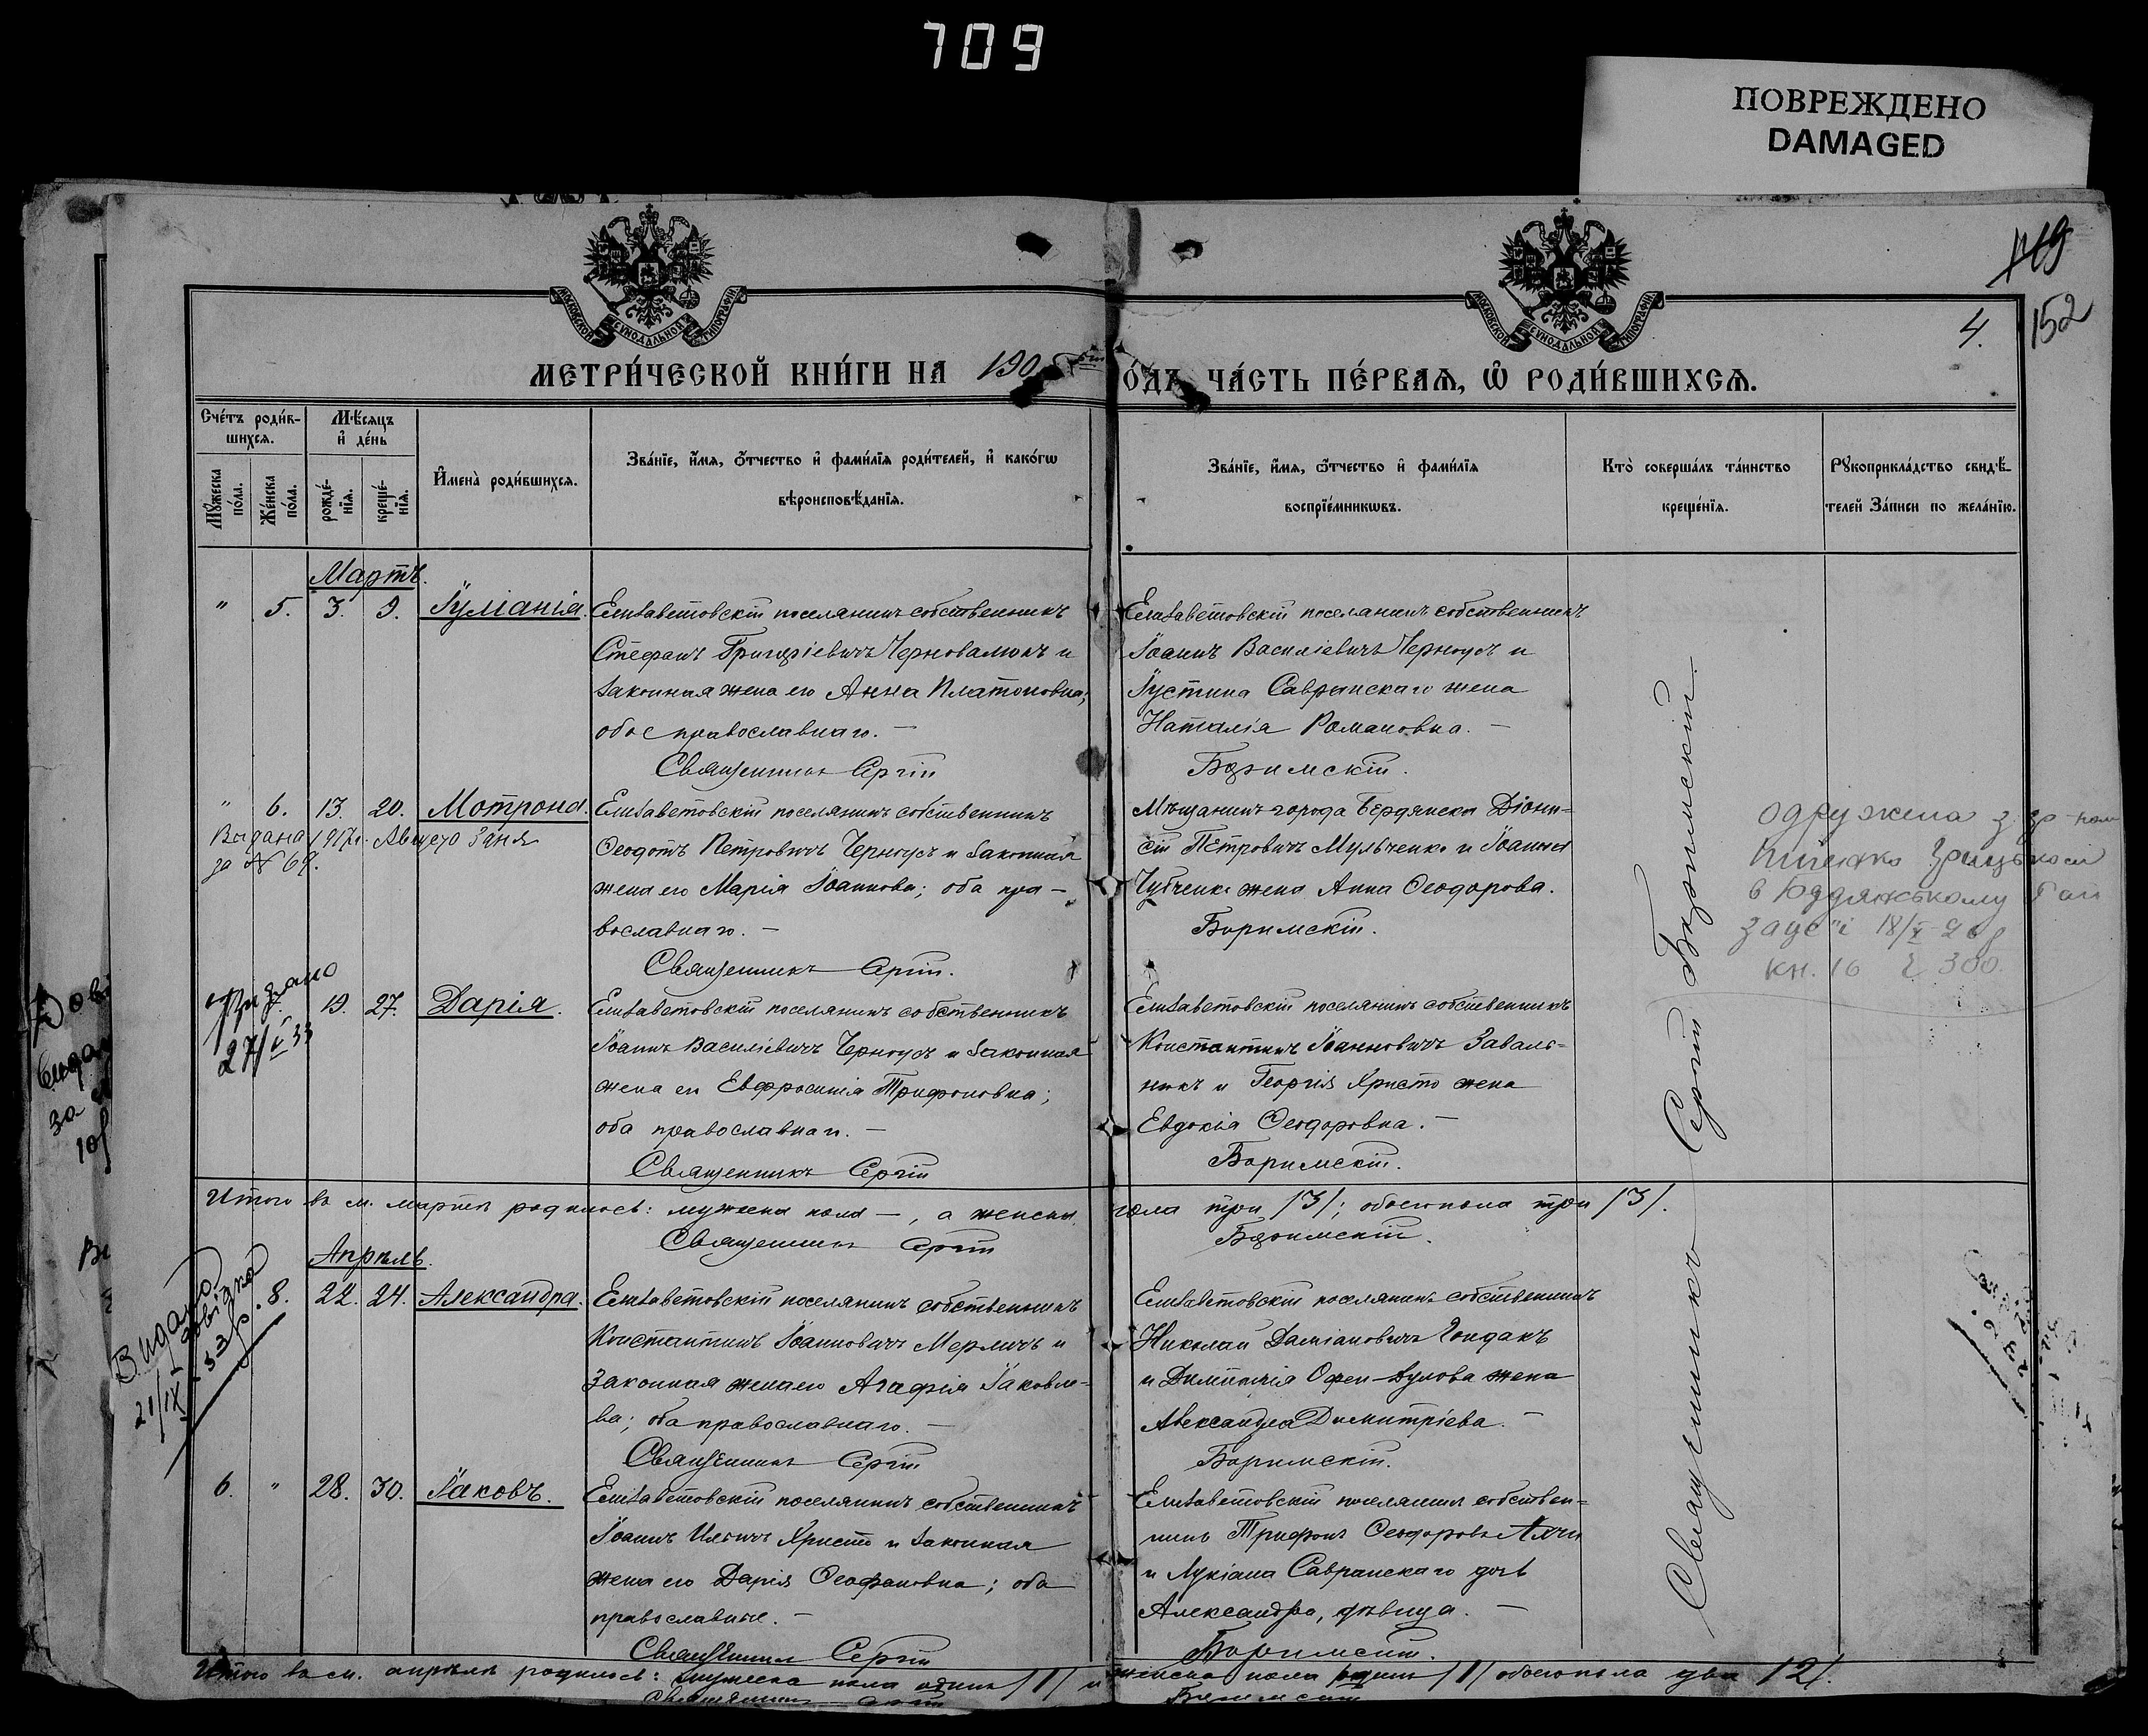 709
ПОВРЕЖДЕНО
DAMAGED
119
152
4.
МОСКОВСКОЙ СѴНОДАЛЬНОЙ ТИПОГРАФІИ
МОСКОВСКОЙ СѴНОДАЛЬНОЙ ТИПОГРАФІИ
МЕТРИ́ЧЕСКОЙ КНИ́ГИ НА 190
О́ДЪ, ЧА́СТЬ ПЕ́РВАЯ, Ѿ РОДИ́ВШИХСЯ.
Сче́тъ роди́в-
шихся.
Мѣ́сяцъ
и҆ де́нь
Мꙋ́жеска
по́ла.
Же́нска
по́ла.
рожде́-
нїя.
креще́-
нїя.
И҆мена̀ роди́вшихся.
Зва́нїе, и҆́мя, ѻ҆́тчество и҆ фами́лїя роди́телей, и҆ како́гѡ
вѣроисповѣ́данїя.
Зва́нїе, и҆́мя, ѻ҆́тчество и҆ фами́лїя
воспрїе́мникѡвъ.
Кто̀ соверша́лъ та́инство
креще́нїя.
Рꙋкоприкла́дство свидѣ́-
телей За́писи по жела́нїю.
Мартъ.
" 5. 3. 9. Іуліанія.
Елисаветовскій поселянинъ собственникъ
Стефанъ Григоріевичъ Черновалюкъ и
законная жена его Анна Платоновна;
обое православнаго. —
Священникъ Сергій
Елисаветовскій поселянинъ собственникъ
Іоаннъ Василіевичъ Черноусъ и
Іустина Савранскаго жена
Наталія Романовна. —
Боримскій.
" 6. 13. 20. Мотрона.
Видана 1917 г. Августа 3 дня
за № 69.
Елисаветовскій поселянинъ собственникъ
Ѳеодотъ Петровичъ Черноусъ и законная
жена его Марія Іоаннова; оба пра-
вославнаго. —
Священникъ Сергій.
Мѣщанинъ города Бердянска Діони-
сій Петровичъ Мульченко и Іоанна
Чубченко жена Анна Ѳеодорова.
Боримскій.
одружена з гр-ном
в Бердянському Рай
загсі 18/X 26 р
кн. 16 300.
27/V 33
19. 27. Дарія.
Елисаветовскій поселянинъ собственникъ
Іоаннъ Василіевичъ Черноусъ и законная
жена его Евфросинія Трифоновна;
оба православнаго. —
Священникъ Сергій
Елисаветовскій поселянинъ собственникъ
Константинъ Іоанновичъ Заваль-
никъ и Георгія Христо жена
Евдокія Ѳеодоровна. —
Боримскій.
Итого въ м. мартѣ родилось: мужеска пола —, а женска
пола три /3/; обоего пола три /3/.
Священникъ Сергій
Боримскій.
Апрѣль.
Видано
довідка
21/IX 33 р.
8. 22. 24. Александра.
Елисаветовскій поселянинъ собственникъ
Константинъ Іоанновичъ Мерличъ и
законная жена его Агафія Іаковле-
ва; оба православнаго. —
Священникъ Сергій
Елисаветовскій поселянинъ собственникъ
Николай Даміановичъ Гондакъ
и Димитрія жена
Александра Димитріева. —
Боримскій.
6. " 28. 30. Іаковъ.
Елисаветовскій поселянинъ собственникъ
Іоаннъ Ильичъ Христо и законная
жена его Дарія Ѳеофановна; оба
православные. —
Священникъ Сергій
Елисаветовскій поселянинъ собствен-
никъ Трифонъ Ѳеодоровъ
и Лукіана Савранскаго дочь
Александра, дѣвица. —
Боримскій.
Священникъ Сергій Боримскій.
Итого въ м. апрѣлѣ родилось: мужеска пола одинъ /1/ и
женска пола одинъ /1/ обоего пола два /2/.
Священникъ Сергій
Боримскій